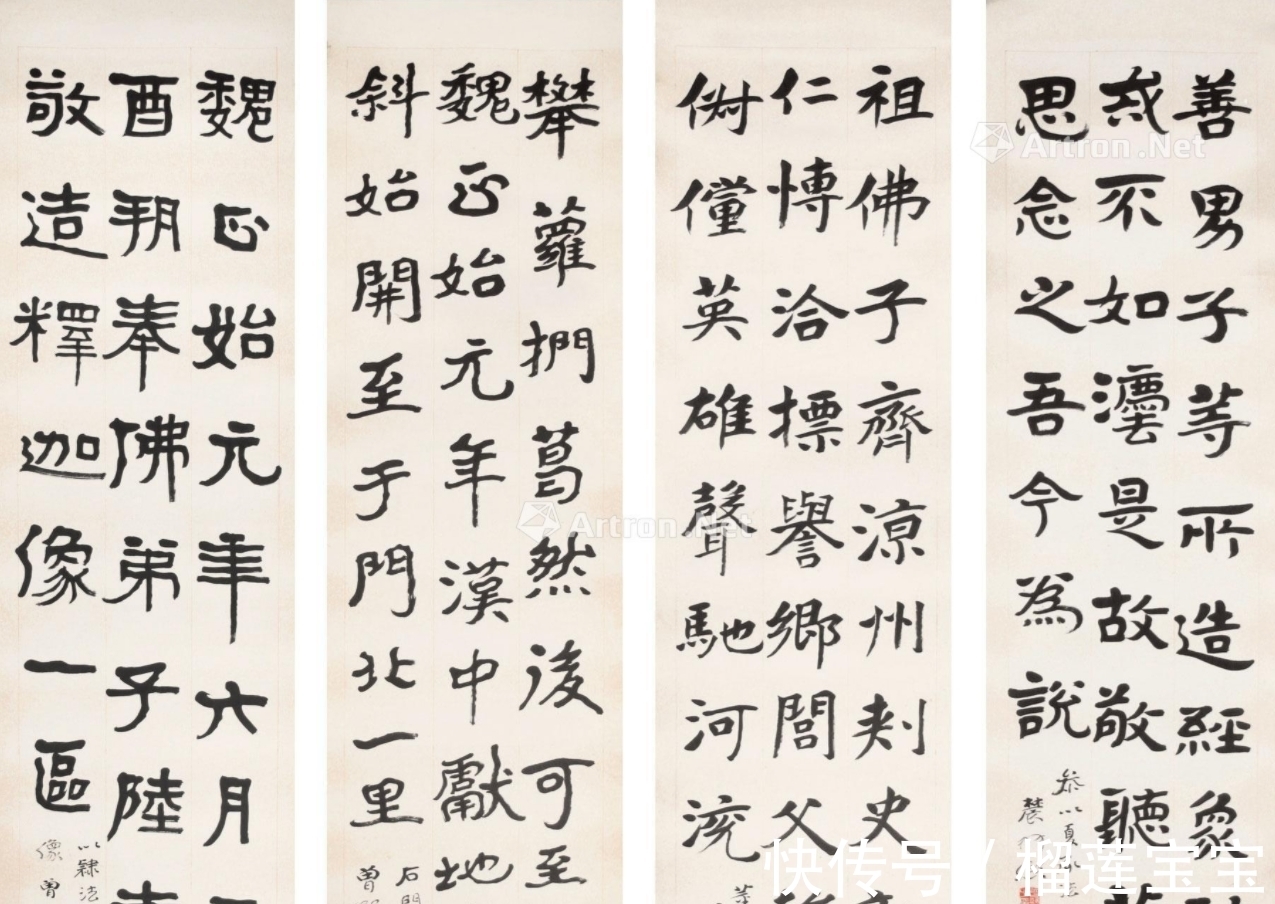 善男子等所造經象
或不如灋是故敬聽
思念之吾今為說
農
祖佛子齊涼州刺史
仁博洽摽譽鄉閭父
倜儻英雄聲馳河
攀蘿捫葛然後可至
魏正始元年漢中獻地
斜始開至于門北一里
石門
曾
魏正始元年六月
酉朔奉佛弟子陸
敬造釋迦像一區
以隸法
像 曾
Artron.Net
Artron.Net
快传号 / 榴莲宝宝